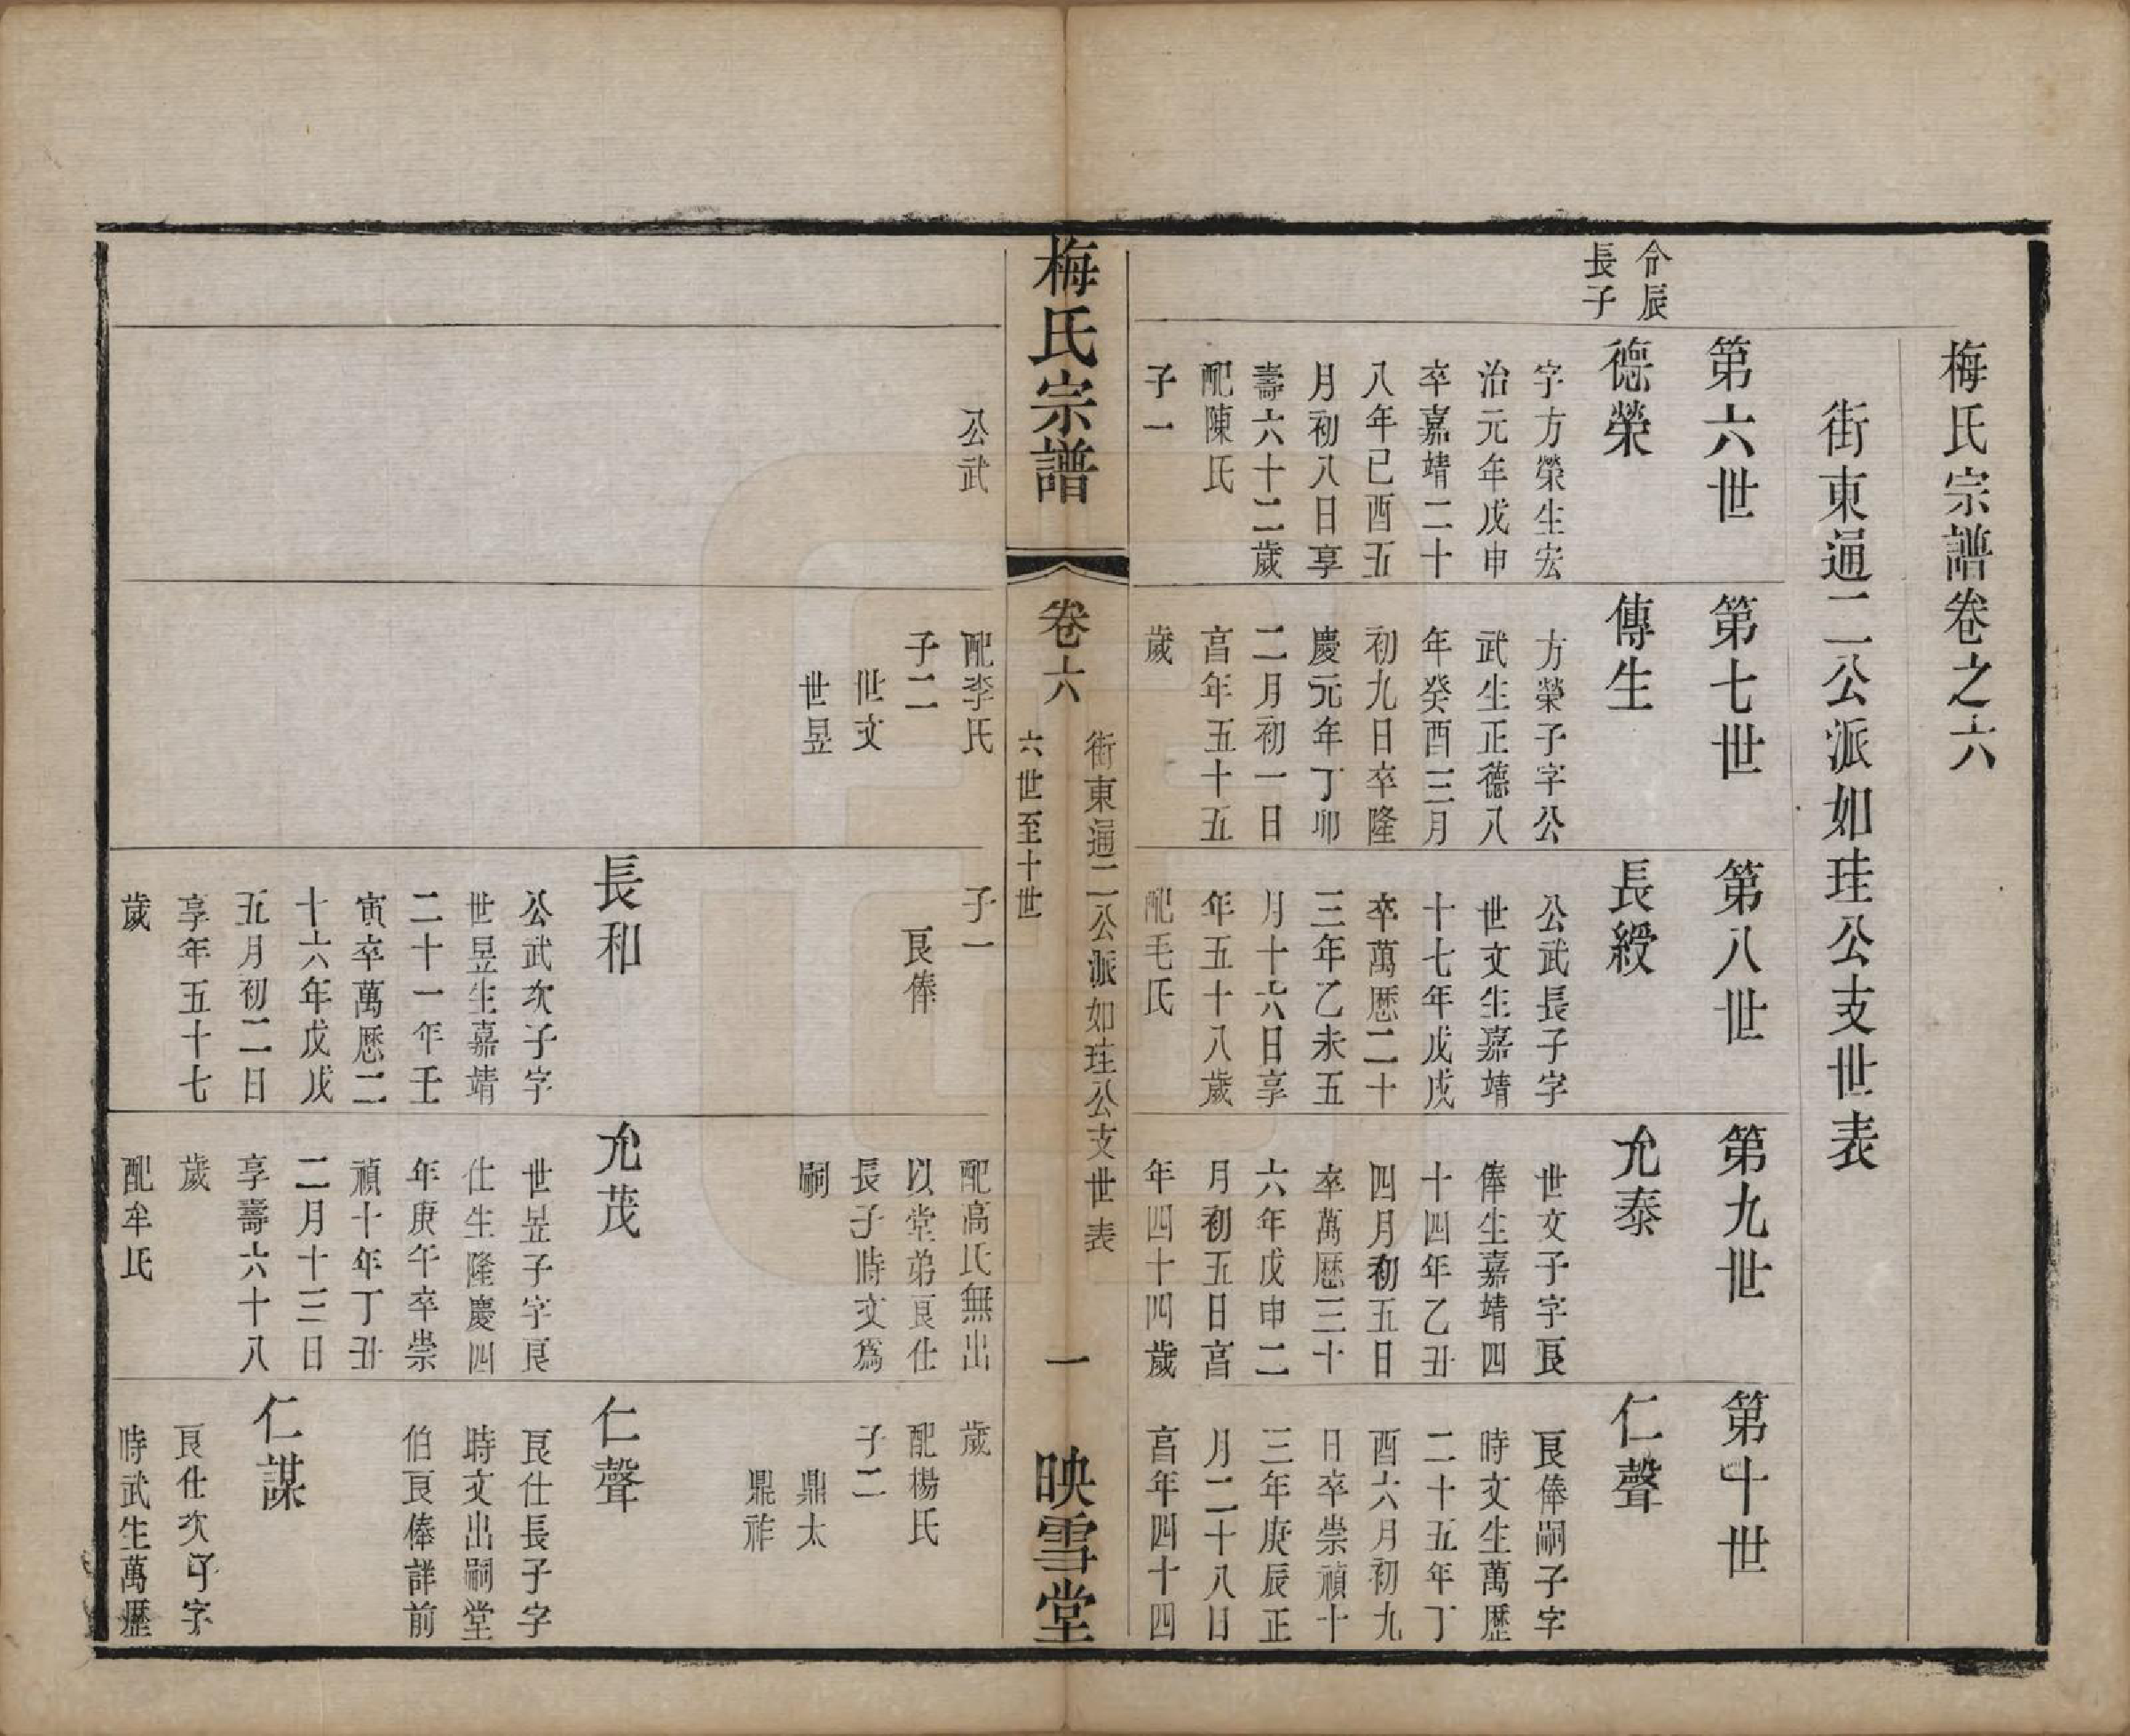 梅氏宗譜卷之六
街東通二公派如珪公支世表
第六世
第七世
第八世
第九世
第十世
介辰
長子
德榮
字方榮生宏
治元年戊申
卒嘉靖二十
八年已酉五
月初八日享
壽六十二歲
配陳氏
子一
公武
傳生
方榮子字公
武生正德八
年癸酉三月
初九日卒隆
慶元年丁卯
二月初一日
亯年五十五
歲
配李氏
子二
世文
世昱
長綬
公武長子字
世文生嘉靖
十七年戊戌
卒萬歷二十
三年乙未五
月十六日享
年五十八歲
配毛氏
子一
良俸
長和
公武次子字
世昱生嘉靖
二十一年壬
寅卒萬歷二
十六年戊戌
五月初二日
享年五十七
歲
允泰
世文子字良
俸生嘉靖四
十四年乙丑
四月初五日
卒萬歷三十
六年戊申二
月初五日亯
年四十四歲
配高氏無出
以堂弟良仕
長子時文爲
嗣
允茂
世昱子字良
仕生隆慶四
年庚午卒崇
禎十年丁丑
二月十三日
享壽六十八
歲
配牟氏
仁聲
良俸嗣子字
時文生萬歷
二十五年丁
酉六月初九
日卒崇禎十
三年庚辰正
月二十八日
亯年四十四
歲
配楊氏
子二
鼎太
鼎祚
仁聲
良仕長子字
時文出嗣堂
伯良俸詳前
仁謀
良仕次子字
時武生萬歷
梅氏宗譜
卷六
街東通二公派如珪公支世表
六世至十世
一
映雪堂